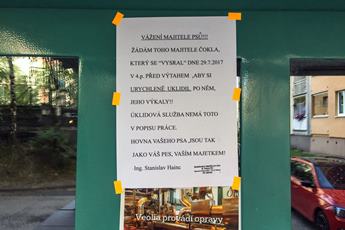 VÁŽENÍ MAJITELE PSŮ!!!!
ŽÁDÁM TOHO MAJITELE ČOKLA,
KTERÝ SE "VYSRAL" DNE 29.7.2017
V 4.p. PŘED VÝTAHEM ,ABY SI
URYCHLENĚ UKLIDIL PO NĚM,
JEHO VÝKALY!!
ÚKLIDOVÁ SLUŽBA NEMÁ TOTO
V POPISU PRÁCE.
HOVNA VAŠEHO PSA ,JSOU TAK
JAKO VÁŠ PES, VAŠÍM MAJETKEM!
Ing. Stanislav Hainc
Veolia provádí opravy